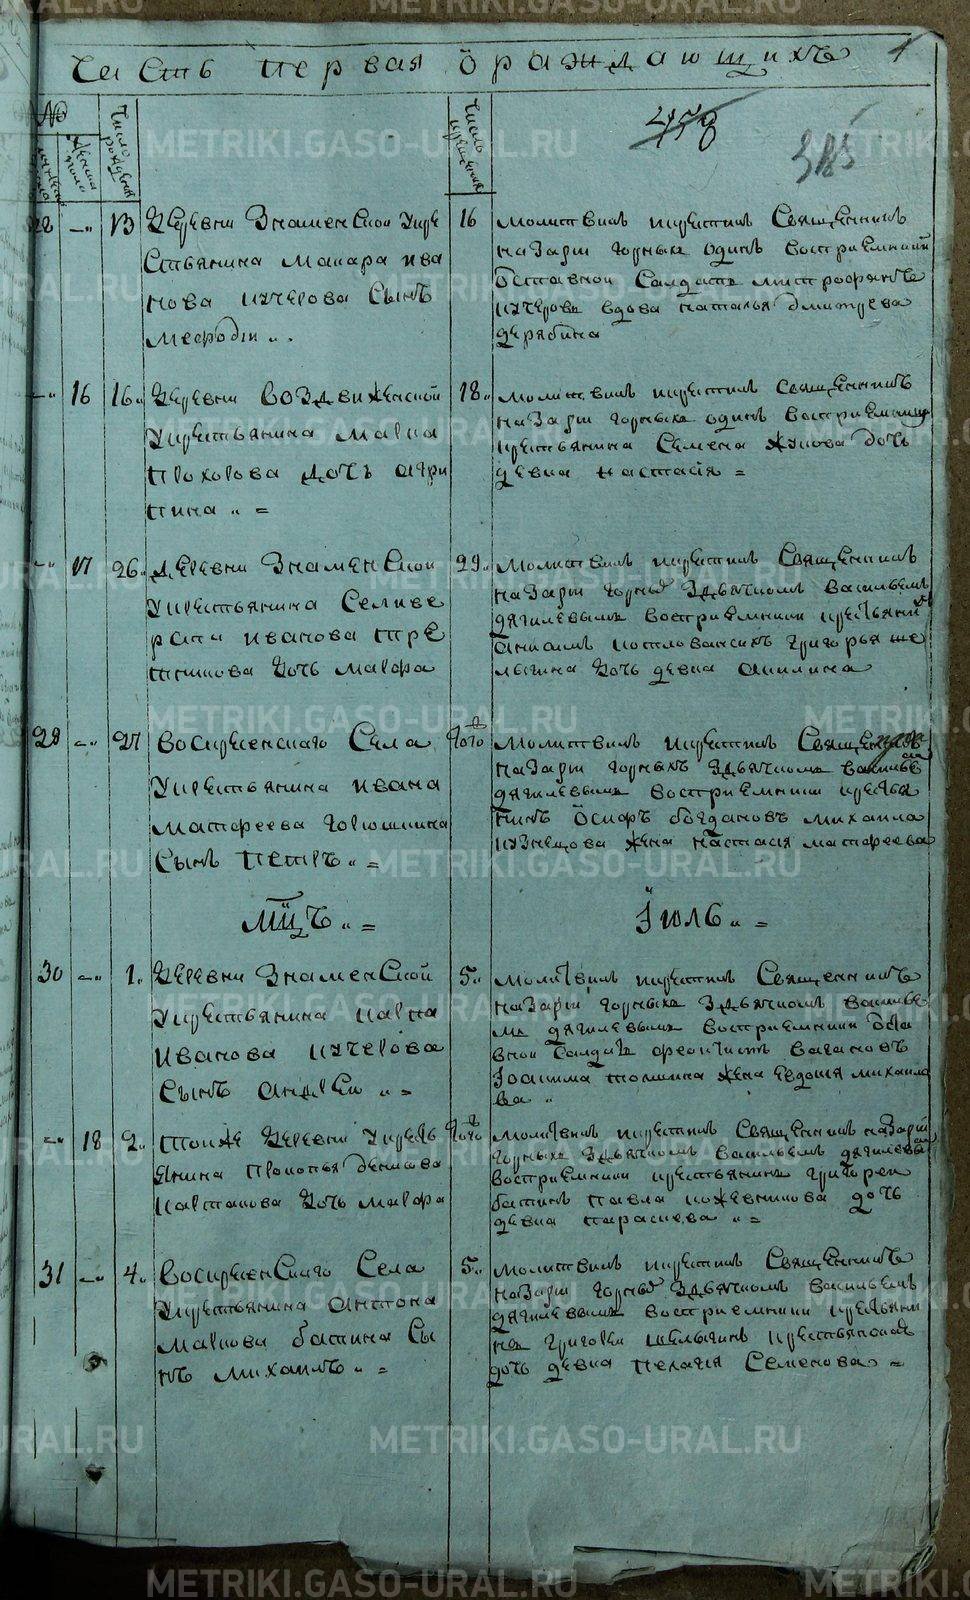 Часть первая о раждающихъ
1
№
Число рождения
Число крещения
478
385
мужеска
женска пола
28 — 13 Деревни Знаменской кре
стьянина Макара Ива
нова Кучерова сынъ
Мефодiи
16 молитвилъ икрестилъ Священникъ
Назарiи Горныхъ один воспрiемникъ
отставнои Салдатъ Митрофанъ
Кучеровъ вдова Наталья Дмитрева
Дерябина
— 16 16 Деревни Воздвиженской
крестьянина Марка
Прохорова дочь Акри
пина
18 молитвилъ икрестилъ Священникъ
Назарiи Горныхъ одинъ воспрiемница
крестьянина Семена Жукова дочь
девка Настасiя
— 17 26 деревни Знаменской
крестьянина Селиве
рста Иванова Тре
тникова дочь Мавра
29 Молитвилъ икрестилъ Священникъ
Назарiи Горныхъ здьячкомъ Васильемъ
Дягилевымъ воспрiемники крестьянинъ
Григорья Ше
лыгина дочь девка Акилина
29 — 27 Воскресенскаго Села
крестьянина Ивана
Матфеева
сынъ Петръ
тогоже молитвилъ икрестилъ Священникъ
Назарiи Горныхъ здьячкомъ Василье
Дягилевымъ воспрiемники крестья
нинъ Осипъ Богдановъ Михаила
Кузнецова жена Настасiя Матфеева
Мцъ
Iюль
30 — 1 Деревни Знаменской
крестьянина Карпа
Иванова Кучерова
сынъ Андреи
5 молитвилъ икрестилъ Священникъ
Назарiи Горныхъ здьячкомъ Василье
мъ Дягилевымъ воспрiемники отста
внои Салдатъ Феоктистъ Вагановъ
Iоакима Толшина жена Евдокiя Михаило
ва
— 18 2 Тойже деревни кресть
янина Прокопья Денисова
Колтакова дочь Мавра
тогоже молитвилъ икрестилъ Священникъ Назарiй
Горныхъ здьячкомъ Васильемъ Дягилевы
воспрiемники крестьянинъ Григореи
Батинъ Павла Кожевникова дочь
девка Параскева
31 — 4 Воскресенскаго Села
крестьянина Антона
Маркова Батина сы
нъ Михаилъ
5 молитвилъ икрестилъ Священникъ
Назарiи Горныхъ здьячкомъ Васильемъ
Дягилевымъ воспрiемники крестьяни
нъ Григореи Шелыгинъ крестьянская
дочь девка Пелагiя Семенова